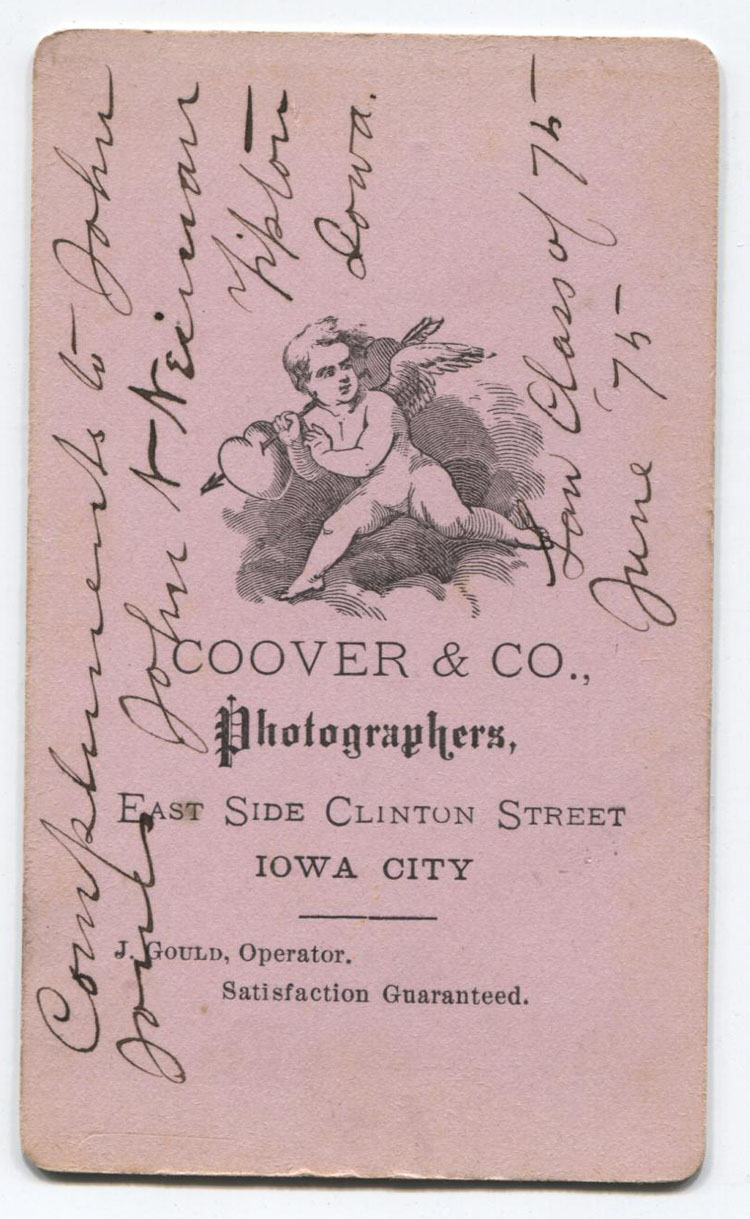 Compliments to John
Jones John N Neiman
Tipton
Iowa.
Law Class of 75
June '75
COOVER & CO.,
Photographers,
EAST SIDE CLINTON STREET
IOWA CITY
J. GOULD, Operator.
Satisfaction Guaranteed.